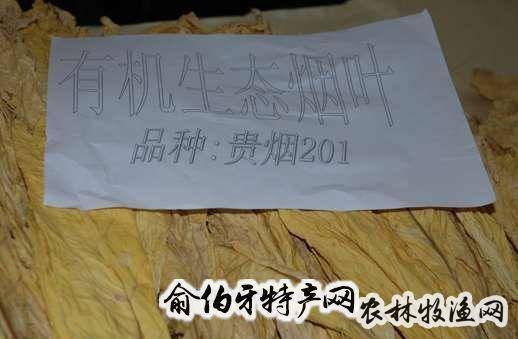 有机生态烟叶
品种:贵烟201
俞伯牙特产网 农林牧渔网